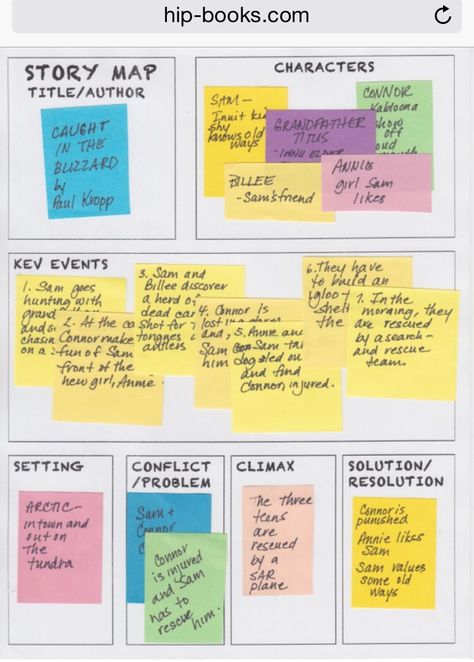 hip-books.com
STORY MAP
TITLE/AUTHOR
CAUGHT
IN THE
BLIZZARD
by
Paul Kropp
CHARACTERS
SAM-
Inuit kid
shy
knows old
ways
GRANDFATHER
TITUS
CONNOR
Kabloona
show
off
BILLEE
- Sam's friend
ANNIE
girl Sam
likes
KEY EVENTS
1. Sam goes
hunting with
grand
chasin
on a
2. At the ca
Connor make
fun of Sam
front of the
new girl, Annie.
3. Sam and
Billee discover
a herd of
dead car
shot for
tongues
antlers
4. Connor is
lost
and,
Sam
him
5. Annie and
Sam ta
dog sled ou
and find
Connor, injured.
6. They have
to build an
igloo
shelt
the
7. In the
morning, they
are rescued
by a search-
and rescue
team.
SETTING
ARCTIC-
in town and
out on
the
tundra
CONFLICT
/PROBLEM
Sam +
Connor
Connor
is injured
and Sam
has to
rescue
him.
CLIMAX
The three
teens
are
rescued
by a
SAR
plane
SOLUTION/
RESOLUTION
Connor is
punished
Annie likes
Sam
Sam values
some old
ways